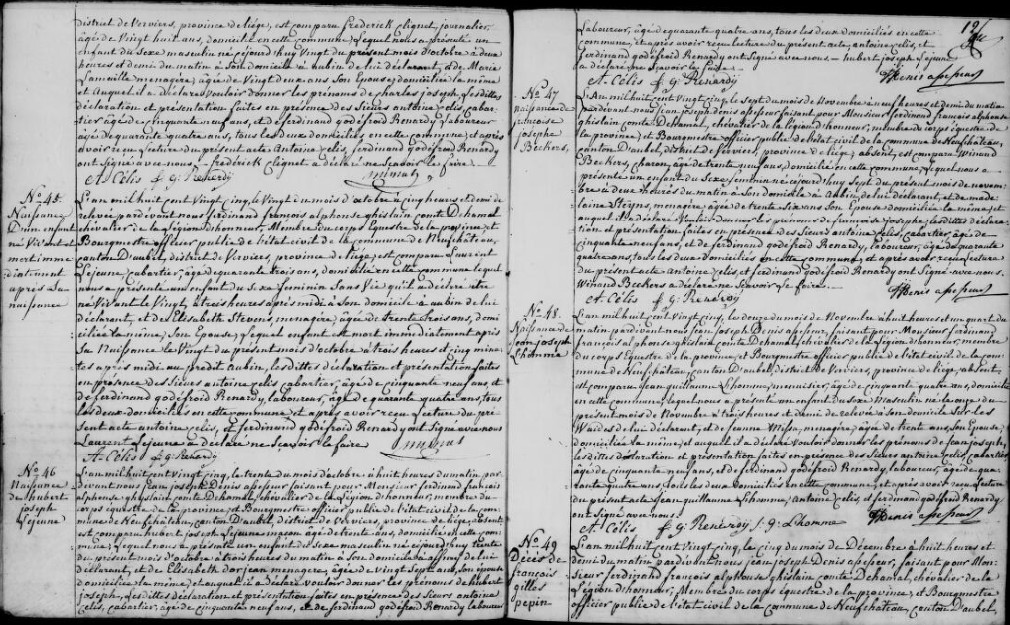 district de Verviers, province de liége, est comparu frédérick clignet, journalier,
âgé de Vingt huit ans, domicilié en cette commune, Lequel nous a présenté un
enfant du Sexe masculin né cejourd'huy Vingt du présent mois d'octobre à deux
heures et demi du matin à Son domicile à aubin de lui déclarant, et de Marie
menagère, agée de Vingt deux ans Son Epouse, domiciliée la même
et Auquel il a déclaré Vouloir donner les prénoms de charles joseph, Lesdittes
déclaration et présentation faites en présence des Sieurs antoine celis, cabar-
tier âgé de cinquante neuf ans, et de ferdinand godefroid Renardy laboureur
âgé de quarante quatre ans, tous les deux domiciliés en cette commune, et après
avoir reçu Lecture du présent acte Antoine celis, ferdinand godefroid Renardy
ont Signé avec nous, frédérick clignet a déclaré ne Scavoir le faire
A. Célis f: g: Renerdy
N° 45.
Naissance
D'un enfant
né Vivant et
mort imme-
diatement
après Sa
naissance
L'an mil huit cent Vingt cinq, le Vingt du mois d'octobre à cinq heures et demi de
relevée pardevant nous ferdinand françois alphonse ghislain comte Dehamal
chevalier de la légion d'honneur, Membre du corps Equestre de la province, et
Bourgmestre officier public de l'état civil de la commune de Neufchâteau,
canton D'aubel, district de Verviers, province de liége, est comparu Laurent
Lejeune, cabartier, âgé de quarante trois ans, domicilié en cette commune lequel
nous a présenté un enfant du Sexe feminin Sans Vie qu'il a déclaré être
né Vivant le Vingt, à trois heures après midi à Son domicile à aubin de lui
déclarant, et de Elisabeth Stevens, menagère, âgée de trente trois ans, domi-
ciliée la même, Son Epouse, Lequel enfant est mort immédiatement après
Sa Naissance le Vingt du présent mois d'octobre à trois heures et cinq minu-
tes après midi au prédit Aubin, les dittes déclaration et présentation faites
en présence des Sieurs antoine celis cabartier, âgé de cinquante neuf ans, et
de ferdinand godefroid Renardy, laboureur, âgé de quarante quatre ans, tous
les deux domiciliés en cette commune et après avoir reçu Lecture du pré-
sent acte antoine celis, et ferdinand godefroid Renardy ont Signé avec nous
Laurent Lejeune a déclaré ne Scavoir le faire
A. Célis f: g: Renerdy
N° 46
Naissance
de hubert
joseph
Lejeune
L'an mil huit cent Vingt cinq, le trente du mois d'octobre à huit heures du matin par-
devant nous jean joseph Denis assesseur faisant pour Monsieur ferdinand françois
alphonse ghislain comte Dehamal, chevalier de la légion d'honneur, membre du
corps équestre de la province et Bourgmestre officier public de l'état civil de la com-
mune de Neufchâteau, canton D'aubel, district de Verviers, province de liége, absent,
est comparu hubert joseph Lejeune maçon âgé de trente ans, domicilié en cette com-
mune, Lequel nous a présenté un enfant du Sexe masculin né cejourd'huy trente
du présent mois d'octobre à trois heures du matin à Son domicile à affnay de lui
déclarant, et de Elisabeth dorjean menagère, âgée de vingt Sept ans, Son épouse
domiciliée la même, et auquel il a déclaré vouloir donner les prénoms de hubert
joseph, Les dittes déclaration et présentation faites en présence des Sieurs antoine
Celis, cabartier, âgé de cinquante neuf ans, et de ferdinand godefroid Renardy laboureur
Laboureur, âgé de quarante quatre ans, tous les deux domiciliés en cette
commune, et après avoir reçu lecture du présent acte, antoine celis, et
ferdinand godefroid Renardy ont Signé avec nous hubert joseph Lejeune
a déclaré ne Scavoir le faire
A. Célis f: g: Renardy
HDenis assesseur
N° 47
naissance de
françoise
josephe
Beckers,
L'An mil huit cent Vingt cinq, le sept du mois de Novembre à neuf heures et demi du matin
pardevant nous jean joseph Denis assesseur faisant pour Monsieur ferdinand françois alphonse
ghislain comte Dehamal, chevalier de la légion d'honneur, membre du corps équestre de
la province et Bourgmestre officier public de l'état civil de la commune de Neufchâteau,
canton D'aubel, district de Verviers, province de liége, absent, est comparu Winand
Beckers, charon, âgé de trente neuf ans, domicilié en cette commune, Lequel nous a
présenté un enfant du Sexe feminin né cejourd'huy Sept du présent mois de novem-
bre à deux heures du matin à Son domicile à Aubin, de lui déclarant, et de made-
laine Steyns, menagère, âgée de trente Six ans Son Epouse domiciliée la même, et
auquel il a déclaré Vouloir donner les prénoms de françoise josephe, les dittes déclara-
tion et présentation faites en présence des Sieurs antoine Celis, cabartier, âgé de
cinquante neuf ans, et de ferdinand godefroid Renardy, Laboureur, âgé de quarante
quatre ans, tous les deux domiciliés en cette commune, et après avoir reçu Lecture
du présent acte antoine celis, et ferdinand godefroid Renardy ont Signé avec nous.
Winand Beckers a déclaré ne Scavoir le faire.
A. Célis f: g: Renerdy
HDenis assesseur
N° 48.
Naissance de
jean joseph
Lhomme
L'an mil huit cent Vingt cinq, le douze du mois de Novembre à huit heures et un quart du
matin pardevant nous jean joseph Denis assesseur, faisant pour Monsieur ferdinand
françois alphonse ghislain comte Dehamal, chevalier de la Légion d'honneur, membre
du corps Equestre de la province, et Bourgmestre officier public de l'état civil de la com-
mune de Neufchâteau, canton D'aubel, District de Verviers, province de liége, absent,
est comparu jean guillaume Lhomme, menuisier, âgé de cinquante quatre ans, domicilié
en cette commune, lequel nous a présenté un enfant du Sexe Masculin né le onze du
présent mois de Novembre à trois heures et demi de relevée à Son domicile Sur les
Waides de lui déclarant, et de jeanne Massa, menagère, âgée de trente ans, Son Epouse,
domiciliée la même, et auquel il a déclaré vouloir donner les prénoms de jean joseph,
les dittes déclaration et présentation faites en présence des Sieurs antoine celis, cabartier,
âgé de cinquante neuf ans, et de ferdinand godefroid Renardy, laboureur, âgé de qua-
rante quatre ans, tous les deux domiciliés en cette commune, et après avoir reçu Lecture
du présent acte jean guillaume Lhomme, Antoine celis, et ferdinand godefroid Renardy
ont Signé avec nous.
A. Célis f: g: Renerdy j: g: Lhomme
HDenis assesseur
N° 49
Décès de
françois
gilles
pepin
L'an mil huit cent Vingt cinq, le cinq du mois de Décembre à huit heures et
demi du matin pardevant nous jean joseph Denis assesseur, faisant pour Mon-
sieur ferdinand françois alphonse ghislain comte Dehamal, chevalier de la
Légion d'honneur, Membre du corps équestre de la province, et Bourgmestre
officier public de l'état civil de la commune de Neufchâteau, canton D'aubel,